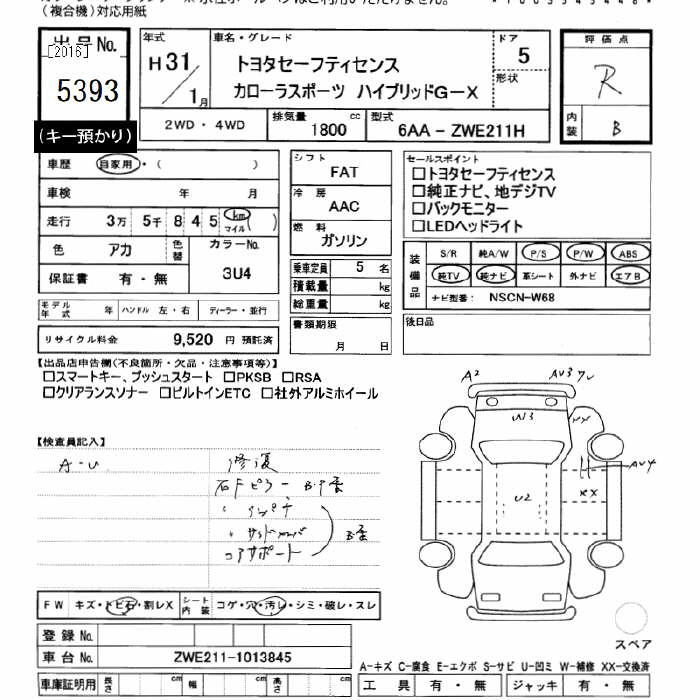 (複合機)対応用紙
出品No.
[2016]
5393
(キー預かり)
年式 車名・グレード ドア 評価点
H31/1月 トヨタセーフティセンス 5 R
カローラスポーツ ハイブリッドG-X 形状
2WD・4WD 排気量 1800 cc 型式 6AA-ZWE211H 内装 B
車歴 自家用・( )
車検 年 月
走行 3万 5千 8 4 5 km マイル ( )
色 アカ 色替 カラーNo. 3U4
保証書 有・無
モデル年式 年 ハンドル 左・右 ディーラー・並行
リサイクル料金 9,520 円 預託済
シフト FAT
冷房 AAC
燃料 ガソリン
乗車定員 5 名
積載量 kg
総重量 kg
書類期限 月 日
セールスポイント
□トヨタセーフティセンス
□純正ナビ、地デジTV
□バックモニター
□LEDヘッドライト
装備品 S/R 純A/W P/S P/W ABS
純TV 純ナビ 革シート 外ナビ エアB
ナビ型番: NSCN-W68
後日品
【出品店申告欄(不良箇所・欠品・注意事項等)】
□スマートキー、プッシュスタート □PKSB □RSA
□クリアランスソナー □ビルトインETC □社外アルミホイール
A2
W3
XX
U2
XX
【検査員記入】
A-U 修復
コアサポート
FW キズ・トビ石・割レX シート内装 コゲ・穴・汚レ・シミ・破レ・スレ
登録No.
車台No. ZWE211-1013845
車庫証明用 長さ cm 幅 cm 高さ cm
スペア
A-キズ C-腐食 E-エクボ S-サビ U-凹ミ W-補修 XX-交換済
工具 有・無 ジャッキ 有・無